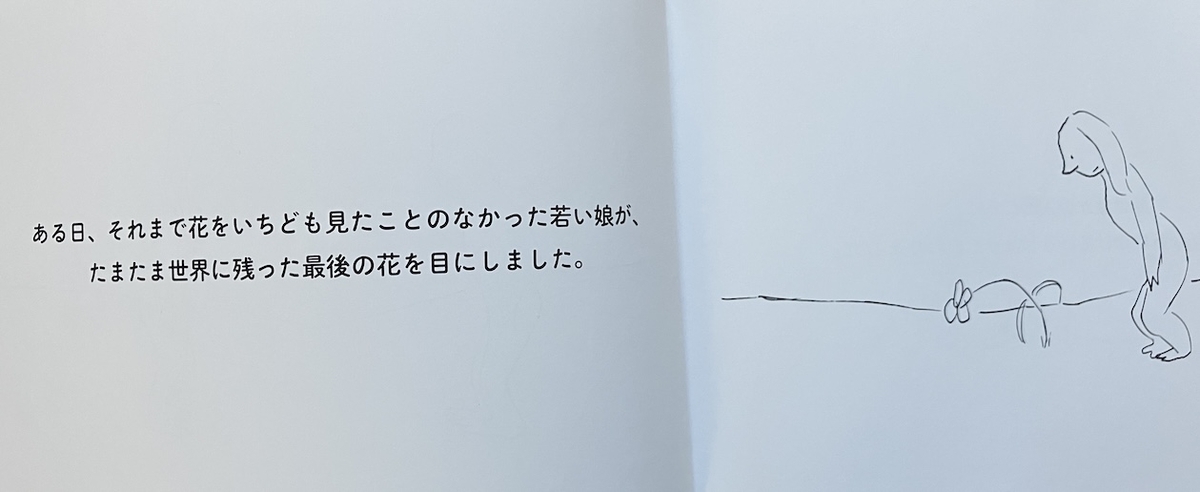 ある日、それまで花をいちども見たことのなかった若い娘が、
たまたま世界に残った最後の花を目にしました。